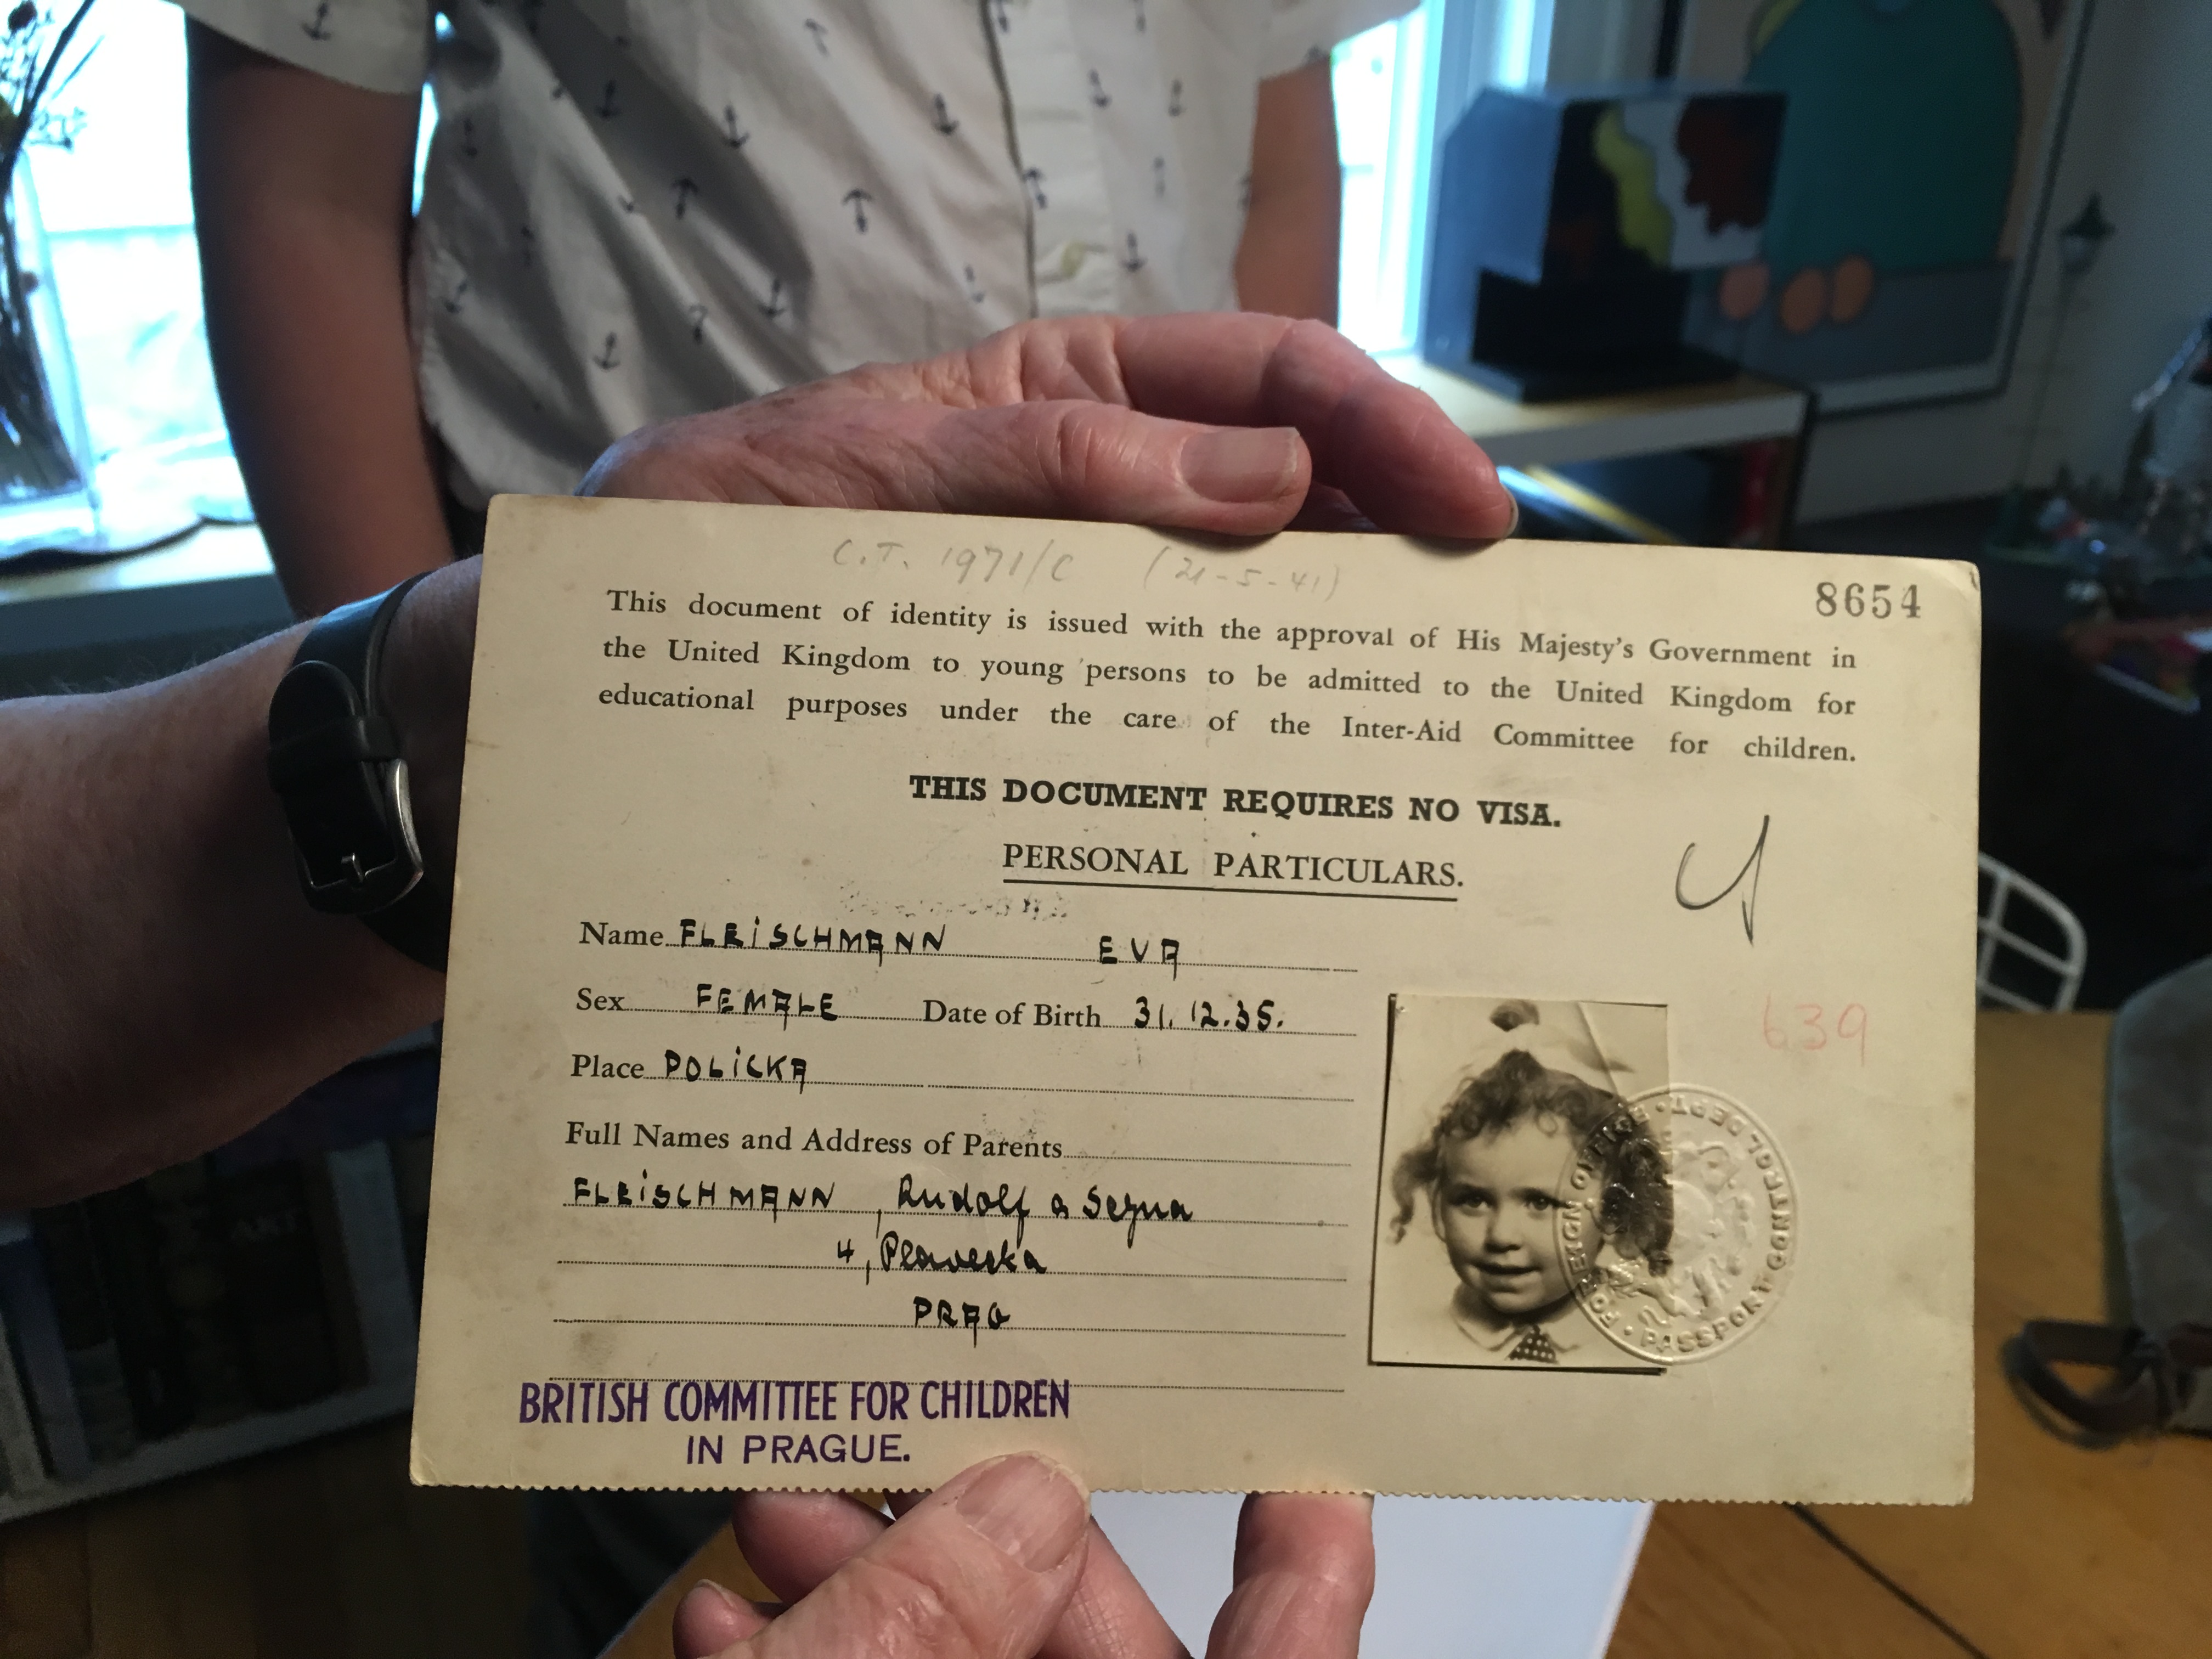 C.T. 1971/C (21-5-41)
8654
This document of identity is issued with the approval of His Majesty's Government in
the United Kingdom to young persons to be admitted to the United Kingdom for
educational purposes under the care of the Inter-Aid Committee for children.
THIS DOCUMENT REQUIRES NO VISA.
PERSONAL PARTICULARS.
Name FLEiSCHMANN EVA
Sex FEMALE Date of Birth 31.12.35.
639
Place POLiCKA
Full Names and Address of Parents
FLEiSCHMANN, Rudolf a
4,
PRAG
FOREIGN OFFICE • PASSPORT CONTROL DEPT. •
BRITISH COMMITTEE FOR CHILDREN
IN PRAGUE.